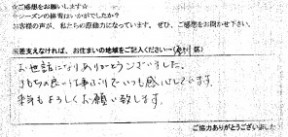 ☆ご感想をお願いします☆
☆シーズンの終着はいかがでしたか?
お客様の声が、私たちの原動力になっています。ぜひ、ご感想をお聞かせ下さい。
※差支えなければ、お住まいの地域をご記入ください→( 区)
お世話になりありがとうございました。
よい仕事ぶりでいつも感心しています。
よろしくお願い致します。
ご協力ありがとうございました